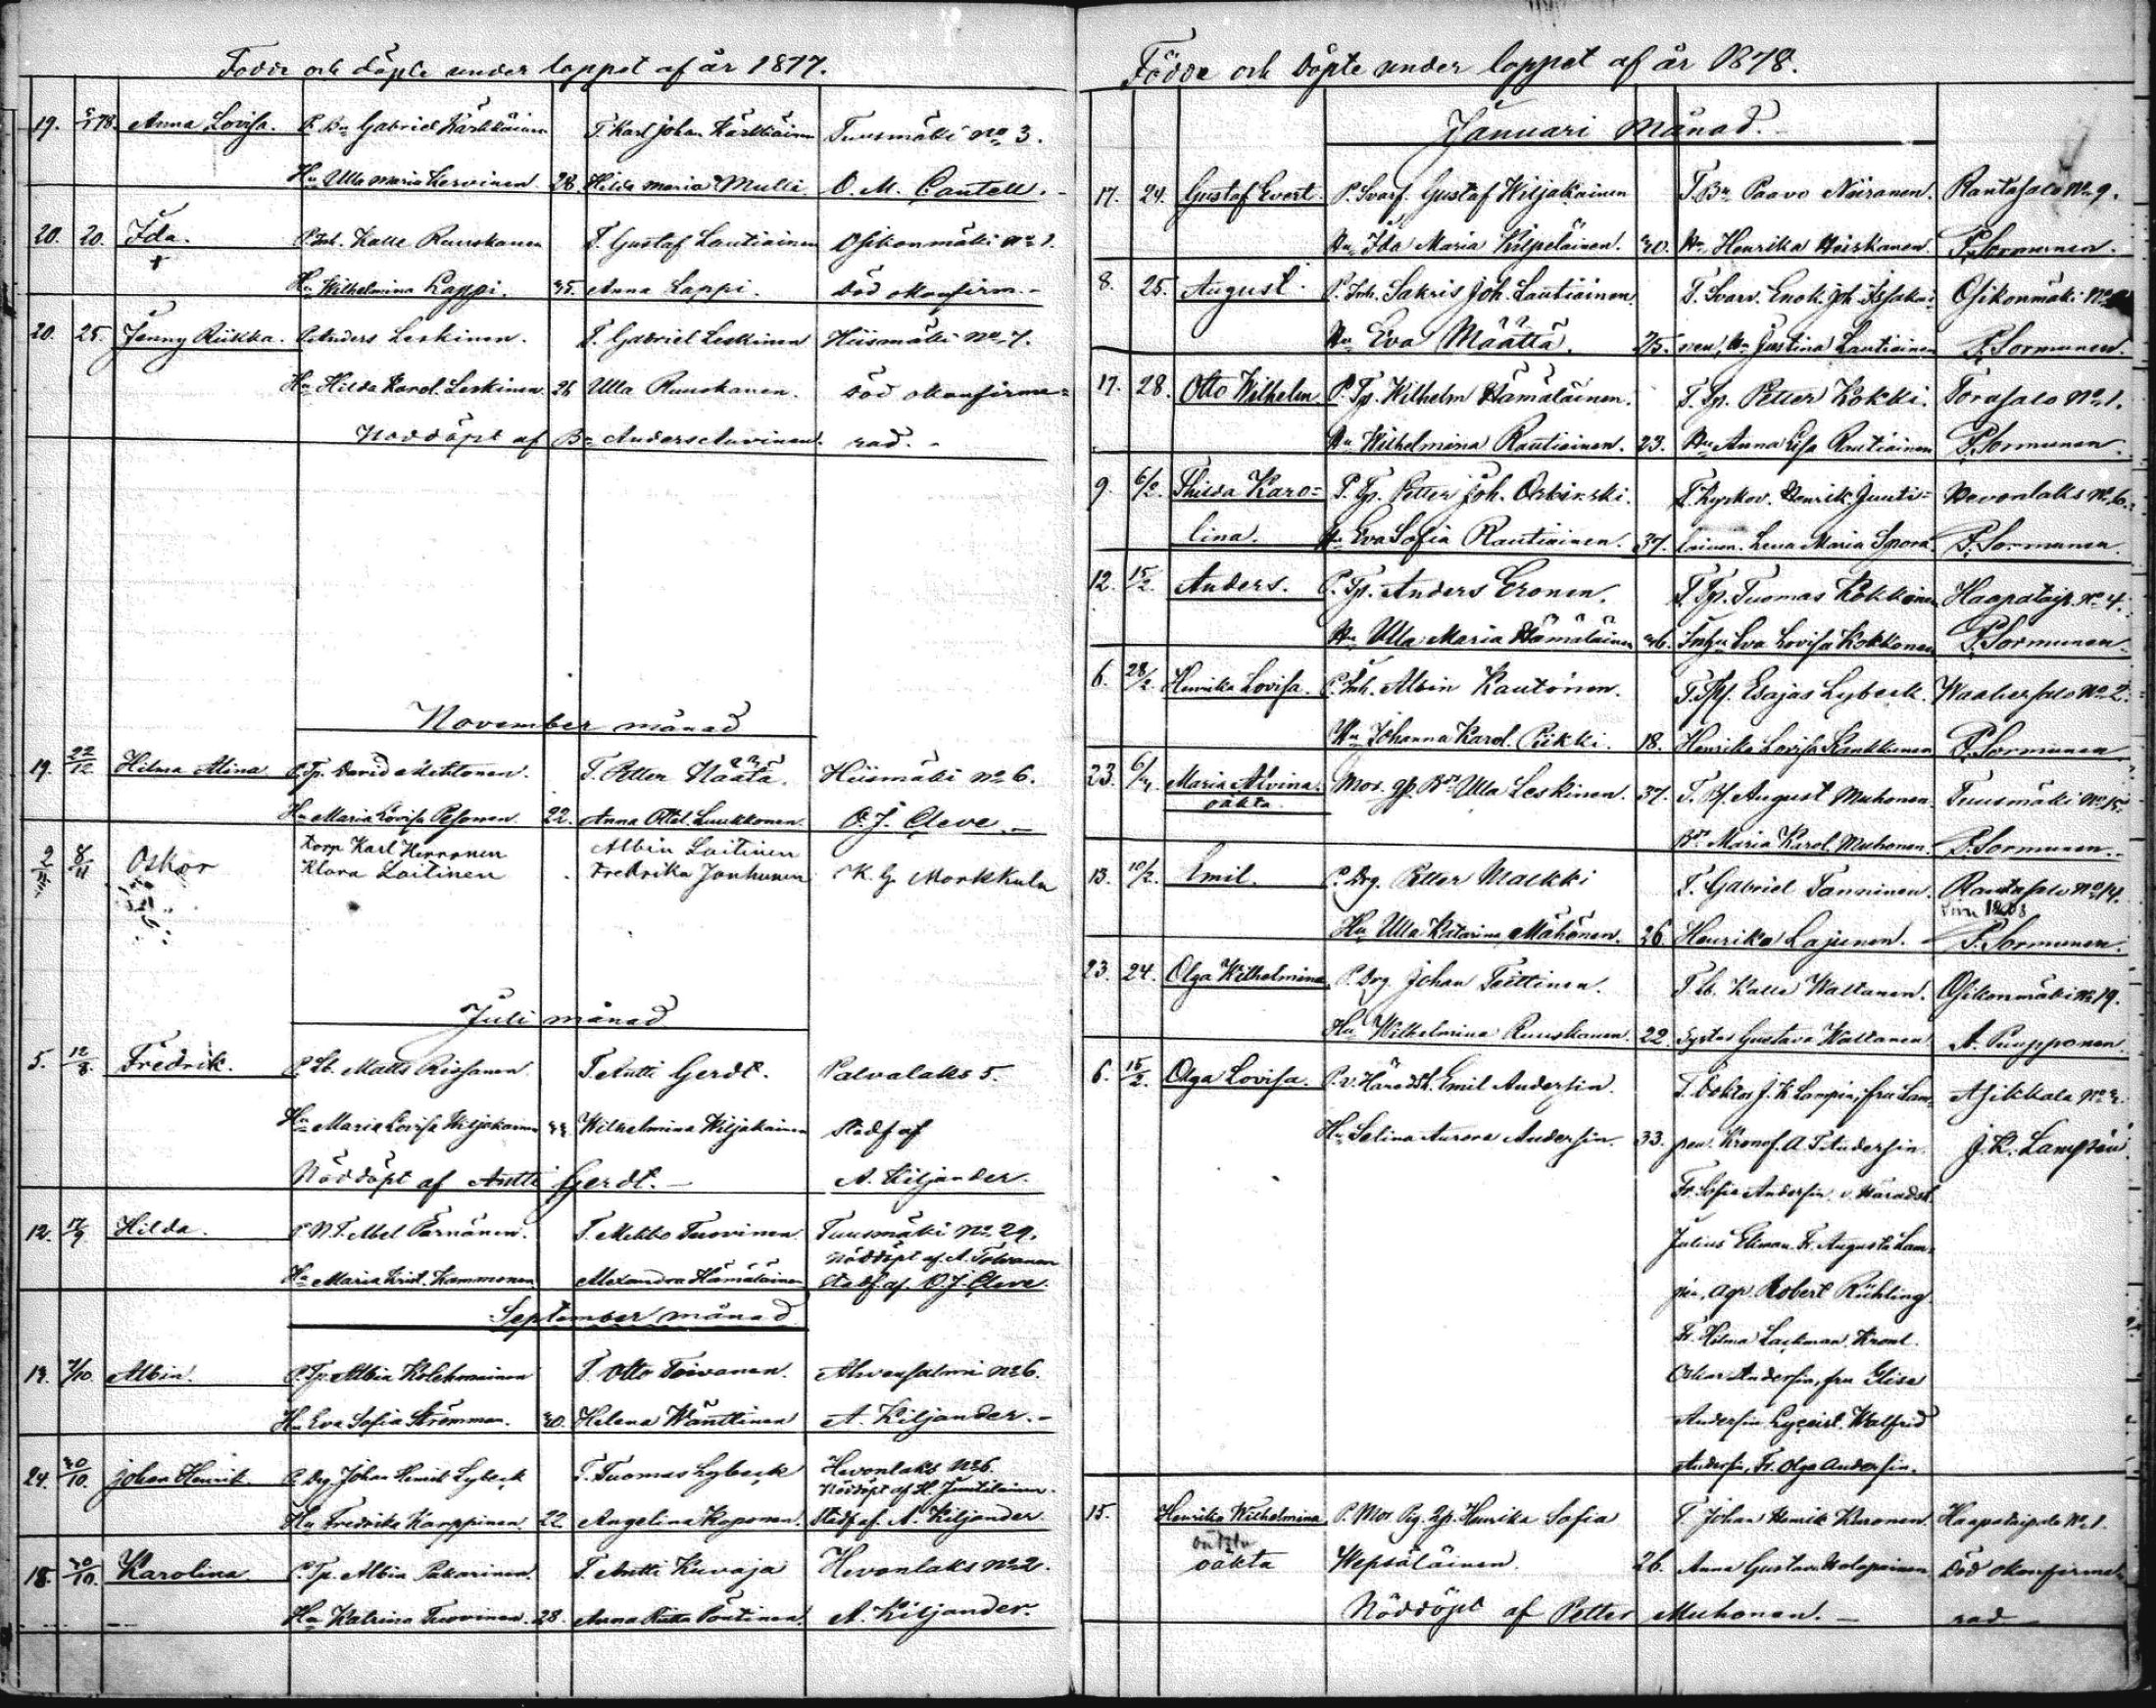 Födde och döpte under loppet af år 1877.
19. 5/1 78. Anna Lovisa. P. Bn Gabriel Kärkkäinen T. Karl Johan Kärkkäinen Tuusmäki No 3.
Hu Ulla Maria Kervinen 28. Hilda Maria Mulli O. M. Cantell.
20. 20. Ida. P. Inh. Kalle Ruuskanen T. Gustaf Lautiainen Osikonmäki No 1.
+ Hu Wilhelmina Lappi. 35. Anna Lappi. Död okonfirm.
20. 25. Jenny Riikka. P. Anders Leskinen. T. Gabriel Leskinen Hiismäki No 7.
Hu Hilda Karol. Leskinen. 26 Ulla Ruuskanen. Död okonfirme=
Nöddöpt af Bn Anders Auvinen. rad.
November månad
19. 22/12 Hilma Alina P. Tp. David Mehtonen. T. Petter Määtä. Hiismäki No 6.
Hu Maria Lovisa Pesonen 22. Anna Ottil. Luukkonen. O. J. Cleve.
2/11 8/11 Oskar Korp Karl Herronen Albin Laitinen
Klara Laitinen Fredrika Janhunen K. G. Morkkula
Juli månad
5. 12/8. Fredrik. P. Lb. Matts Rissanen. T. Antti Gerdt. Palvalaks 5.
Hu Maria Lovisa Wiljakainen Wilhelmina Wiljakainen Stadf af
Nöddöpt af Antti Gerdt. A. Kiljander.
12. 17/9 Hilda. P. N.T. Abel Pärnänen. T. Mikko Tuovinen. Tuusmäki No 29.
Nöddöpt af A. Tolvanen
Hu Maria Krist. Kammonen Alexandra Hämäläinen Stadf. af. O. J. Cleve.
September månad
13. 7/10. Albin. P. Tp. Albin Kolehmainen T. Otto Toivanen. Ahvensalmi No 6.
Hu Eva Sofia Strömman. 30. Helena Wänttinen A. Kiljander.
24. 30/10. Johan Henrik. P. Drg. Johan Henrik Lybeck T. Tuomas Lybeck Hevonlaks No 6.
Nöddöpt af H. Juutilainen.
Hu Fredrika Karppinen. 22 Angelina Koponen. Stadf. af. A. Kiljander
18. 30/10. Karolina P. Tp. Albin Pakarinen. T. Antti Kuvaja Hevonlaks No 2.
Hu Katrina Tuovinen. 28. Anna Riitta Pöntinen. A. Kiljander.
Födde och döpte under loppet af år 1878.
Januari Månad.
17. 24. Gustaf Evert. P. Svarf. Gustaf Wiljakainen T. Bn Paavo Niiranen. Rantasalo No 9.
Hu Ida Maria Kilpeläinen. 30. Hu Henrika Heiskanen. P. Sormunen.
8. 25. August. P. Inh. Sakris Joh. Lautiainen. T. Svarv. Enok Joh. Issakai- Osikonmäki No
Hu Eva Määttä. 25. nen, Hu Justina Lautiainen P. Sormunen.
17. 28. Otto Wilhelm. P. Tp. Wilhelm Hämäläinen. T. Tp. Petter Kokki. Torasalo No 1.
Hu Wilhelmina Rautiainen. 23. Hu Anna Lisa Rautiainen P. Sormunen.
9. 6/2. Thilda Karo= P. Tp. Petter Joh. Oskirski. T. Kyrkov. Henrik Juuti= Hevonlaks No 6.
lina. Hu Eva Sofia Rautiainen. 37. lainen. Lena Maria Spora. P. Sormunen.
12. 15/2. Anders. P. Tp. Anders Eronen. T. Tp. Tuomas Kokkonen Haapataip. No 4.
Hu Ulla Maria Hämäläinen 36. Inhu Eva Lovisa Kokkonen P. Sormunen.
6. 28/2. Henrika Lovisa. P. Inh. Albin Kautonen. T. Esajas Lybeck. Waahersalo No 2.
Hu Johanna Karol. Piikki. 18. Henrika Lovisa P. Sormunen
23. 6/4. Maria Alvina. Mor. gp. Bdr Ulla Leskinen. 37. T. Bs. August Muhonen. Tuusmäki No 15.
oäkta Bdr Maria Karol. Muhonen. P. Sormunen.
13. 10/2. Emil. P. Drg. Petter Malkki T. Gabriel Tanninen. Rantasalo No 14.
Hu Ulla Katarina Mähönen. 26. Henrika Lajunen. P. Sormunen.
23. 24. Olga Wilhelmina P. Drg. Johan Toittinen. T. Lb. Kalle Waltanen. Osikonmäki No 19.
Hu Wilhelmina Ruuskanen. 22. Syster Gustava Waltanen A. Puupponen
6. 15/2. Olga Lovisa. P. v. Häradsh. Emil Andersin. T. Doktor J. K Lampen, fru Lam- Asikkala No 2.
Hu Selina Aurora Andersin. 33. pen. Kronof. A. T. Andersin. J. K. Lampén
Fr. Sofia Andersin, v. Häradsh.
Julius Ekman. Fr. Augusta Lam-
pen, Agr. Robert Rühling
Fr. Hilma Lackman. Kronl.
Oskar Andersin, fru Elise
Andersin Lyceist. Walfrid
Andersin, Fr. Olga Andersin.
15. Henrika Wilhelmina P. Mor. Pig. gp. Henrika Sofia T. Johan Henrik Kuronen. Haapataipale No 1.
oäkta Wepsäläinen. 26. Anna Gustava Holopainen Död okonfirme-
Nöddöpt af Petter Muhonen. rad